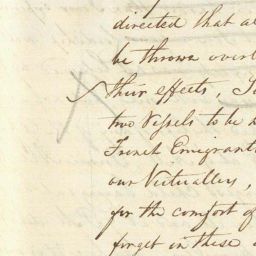 directed that al
be thrown over
their effects,
two Vessels to be
French Emigrant
our Victuallers,
for the comfort of
forget in these